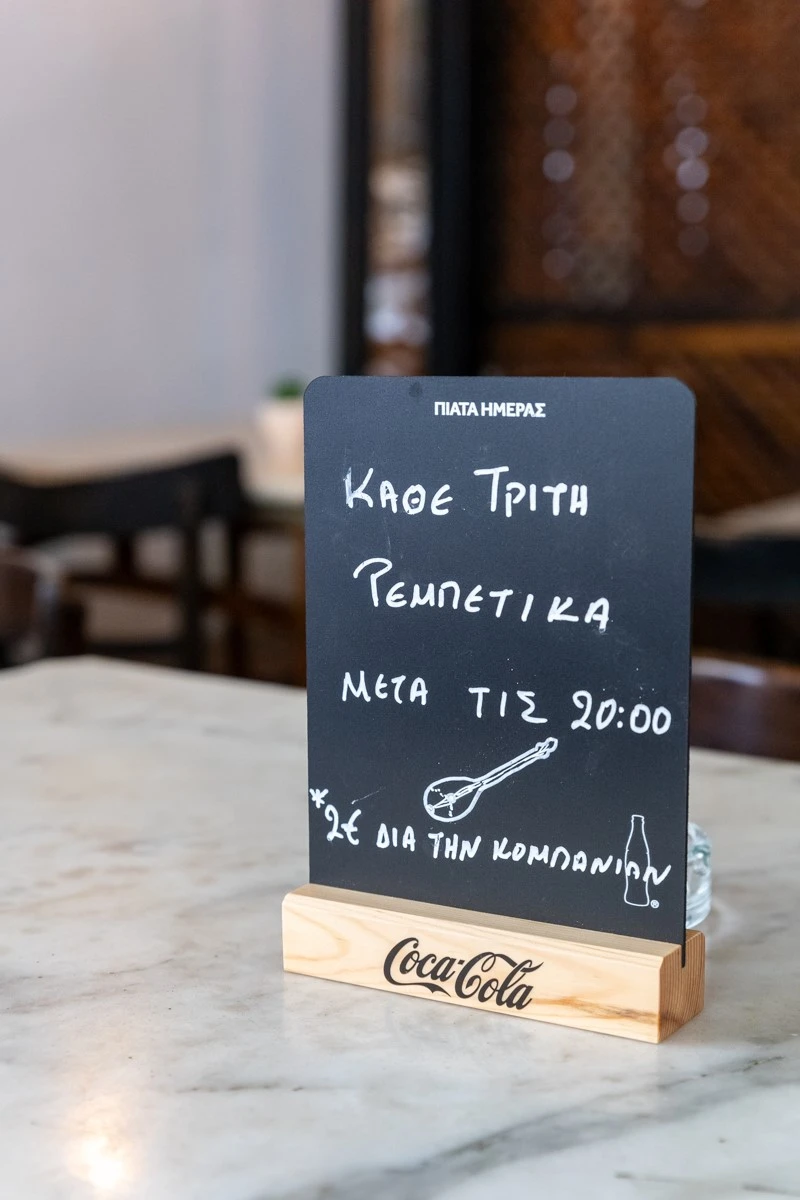 ΠΙΑΤΑ ΗΜΕΡΑΣ
ΚΑΘΕ ΤΡΙΤΗ
ΡΕΜΠΕΤΙΚΑ
ΜΕΤΑ ΤΙΣ 20:00
*2€ ΔΙΑ ΤΗΝ ΚΟΜΠΑΝΙΑΝ
®
Coca-Cola